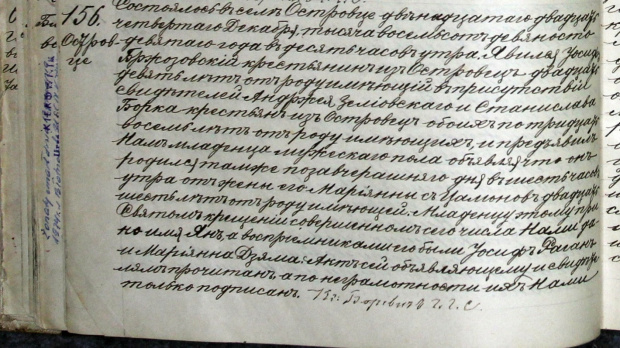 156.
Островце
Состоялось въ селѣ Островце двѣнадцатаго двадцать
четвертаго Декабря, тысяча восемьсотъ девяносто
девятаго года въ десять часовъ утра. Явился Іосифъ
Бржозовскій крестьянинъ изъ Островецъ двадцать
девять лѣтъ отъ роду имѣющій въ присутствіи
свидѣтелей Андрея Земіовскаго и Станислава
Борка крестьянъ изъ Островецъ обоихъ по тридцать
восемь лѣтъ отъ роду имѣющихъ, и предъявилъ
Намъ младенца мужескаго пола объявляя что онъ
родился тамже позавчерашняго дня въ шесть часовъ
утра отъ жены его Маріянны съ Цамоновъ двадцать
шесть лѣтъ отъ роду имѣющей. Младенцу этому при
Святомъ крещеніи совершенномъ сего числа Нами да-
но имя Янъ, а воспріемниками его были Іосифъ Раганъ
и Маріянна Дзяма. Актъ сей объявляющему и свидѣте-
лямъ прочитанъ, а по неграмотности ихъ Нами
только подписанъ.